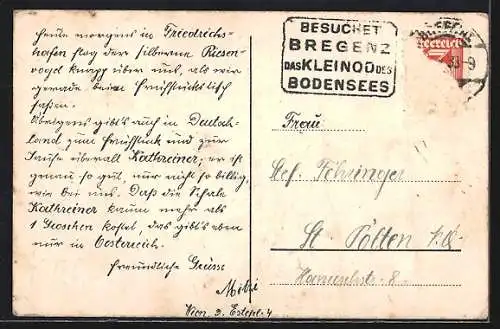 Heute morgens in Friedrichs-
hafen flog der silberne Riesen-
vogel knapp über uns, als wir
gerade beim Frühstückstisch
saßen.
Übrigens gibt's auch in Deutsch-
land zum Frühstück und zur
Jause überall Kathreiner; er ist
genau so gut, nur nicht so billig,
wie bei uns. Daß die Schale
Kathreiner kaum mehr als
1 Groschen kostet, das gibt's eben
nur in Oesterreich.
Freundliche Grüsse
Mitzi
Wien. 2.
BESUCHET
BREGENZ
DAS KLEINOD DES
BODENSEES
Frau
St. Pölten
8